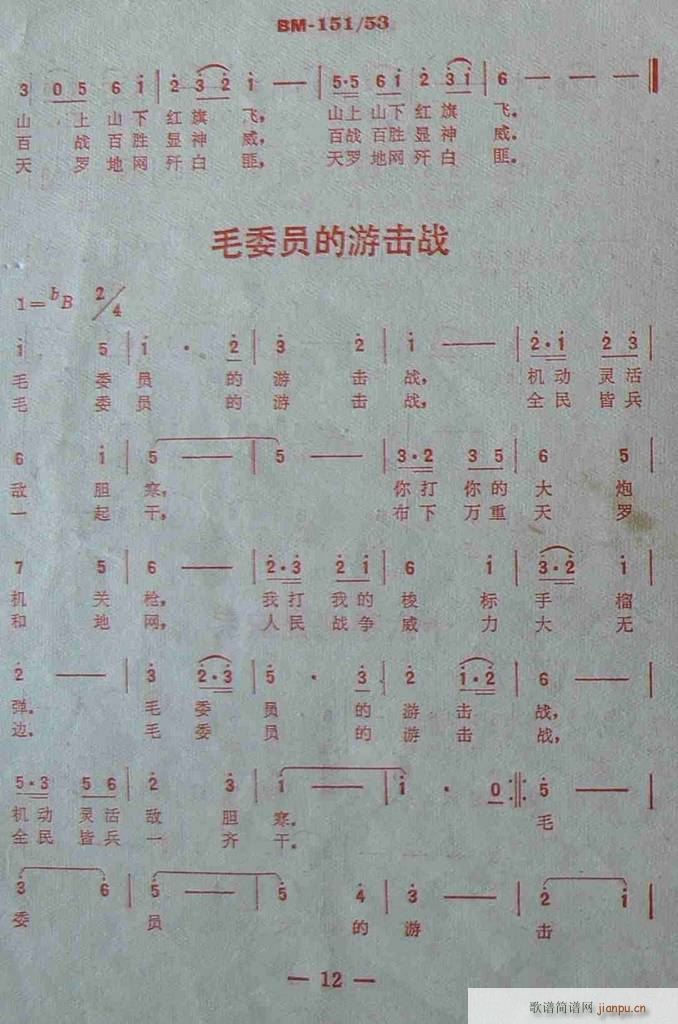 BM-151/53
3 0 5 6 i | 2 3 2 i — | 5·5 6 i 2 3 i | 6 — — —
山 上 山 下 红 旗 飞， 山上 山下 红 旗 飞。
百 战 百 胜 显 神 威， 百战 百胜 显 神 威。
天 罗 地 网 歼 白 匪， 天罗 地网 歼 白 匪。
毛委员的游击战
1=bB 2/4
i 5 | i · 2 | 3 2 | i — | 2·i 2 3
毛 委 员 的 游 击 战， 机动 灵活
毛 委 员 的 游 击 战， 全民 皆兵
6 i | 5 — | 5 — | 3·2 3 5 | 6 5
敌 胆 寒， 你打 你的 大 炮
一 起 干， 布下 万重 天 罗
7 5 | 6 — | 2·3 2 i | 6 i | 3·2 i
机 关 枪， 我打 我的 梭 标 手 榴
和 地 网， 人民 战争 威 力 大 无
2 — | 3 2·3 | 5 · 3 | 2 i·2 | 6 —
弹。 毛 委 员 的 游 击 战，
边。 毛 委 员 的 游 击 战，
5·3 5 6 | 2 3 | i — | i · 0 :||: 5 —
机动 灵活 敌 胆 寒。 毛
全民 皆兵 一 齐 干。
3 6 | 5 — | 5 4 | 3 — | 2 i
委 员 的 游 击
— 12 —
歌谱简谱网 jianpu.cn